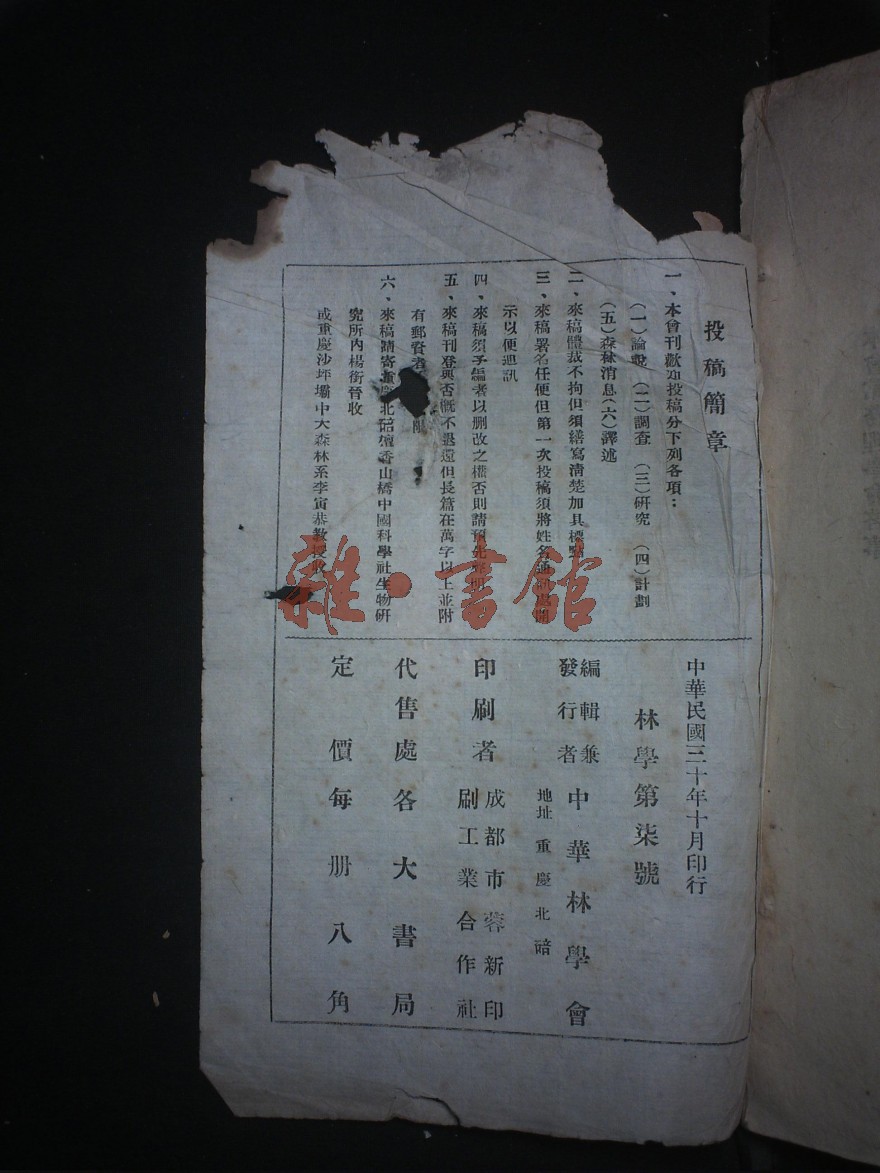 投稿簡章
一、本會刊歡迎投稿分下列各項：
（一）論說（二）調查（三）研究（四）計劃
（五）森林消息（六）譯述
二、來稿體裁不拘但須繕寫清楚加具標點
三、來稿署名任便但第一次投稿須將姓名通訊處開
示以便通訊
四、來稿須予編者以刪改之權否則請預先聲明
五、來稿刊登與否概不退還但長篇在萬字以上並附
有郵資者 限
六、來稿請寄重慶北碚 香山橋中國科學社生物研
究所內楊銜晉收
或重慶沙坪壩中大森林系李寅恭教授收
中華民國三十年十月印行
林學第柒號
編輯兼
發行者
中華林學會
地址 重慶北碚
印刷者
成都市蓉新印
刷工業合作社
代售處各大書局
定價每册八角
雜·書館